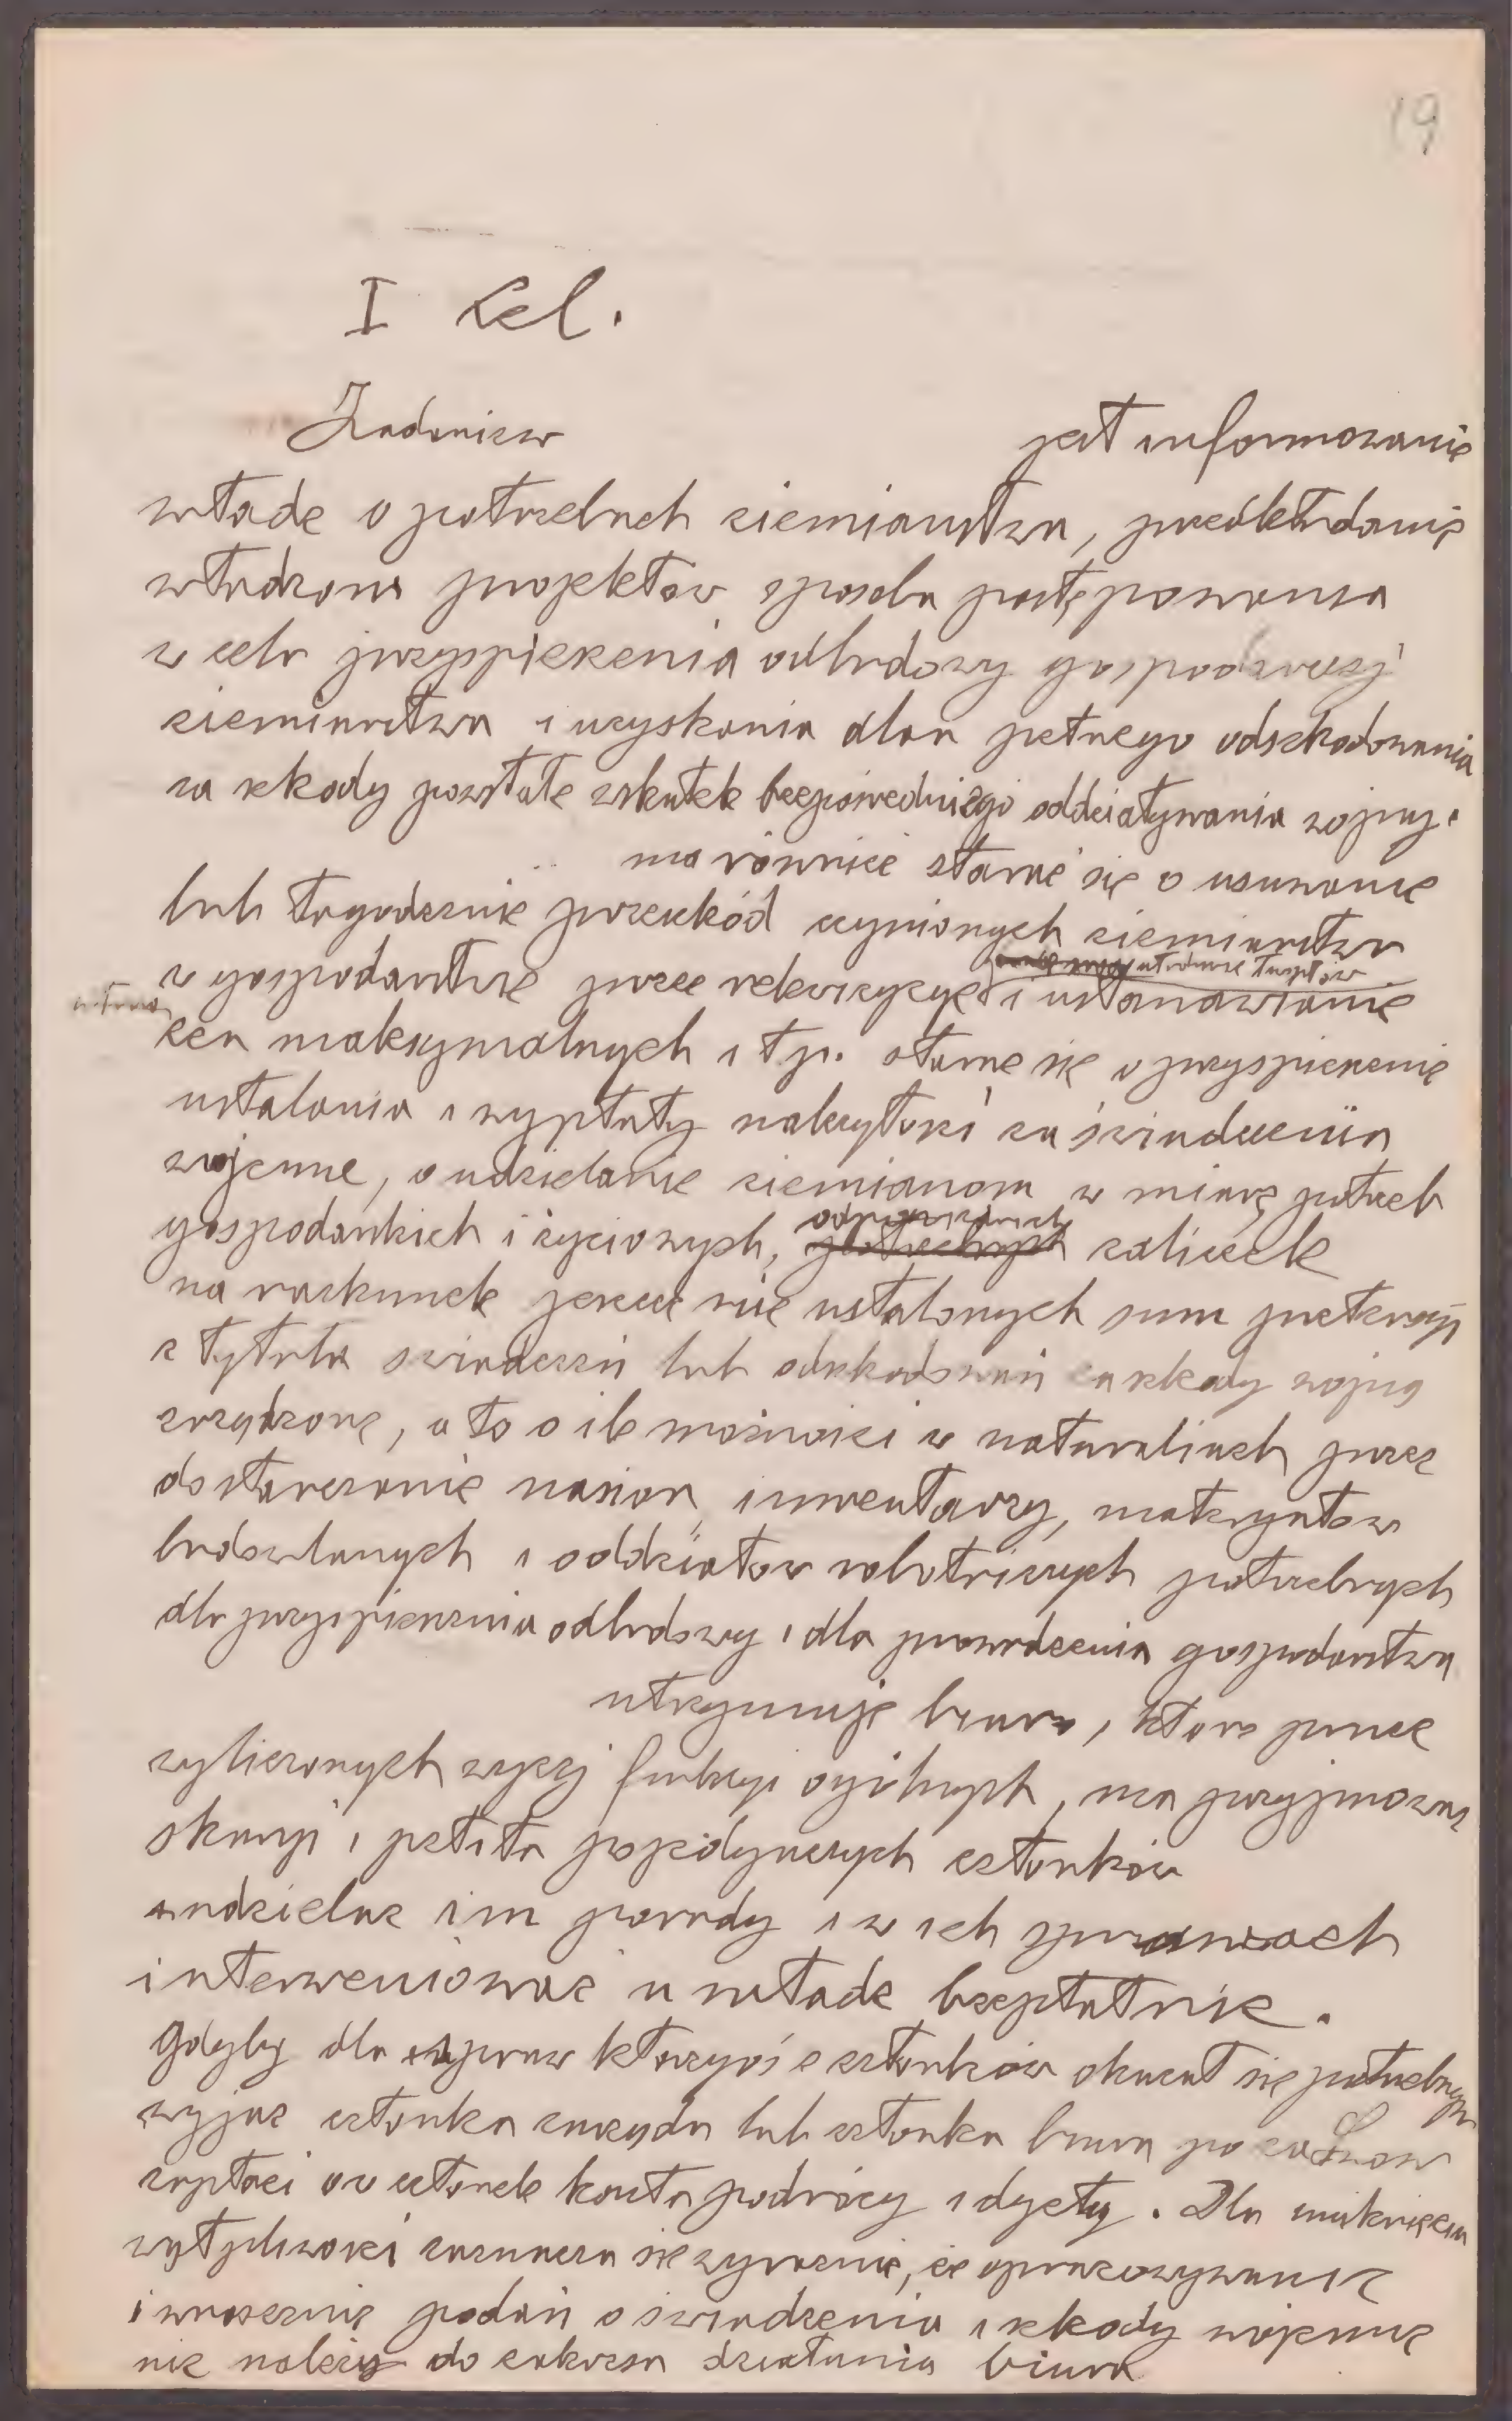 19
I Cel.
Zadaniem jest informowanie
władz o potrzebach ziemiaństwa, przedkładanie
władzom projektów sposobu postępowania
w celu przyspieszenia odbudowy gospodarczej
ziemiaństwa i uzyskania dlań pełnego odszkodowania
za szkody powstałe wskutek bezpośredniego oddziaływania wojny.
ma również starać się o usuwanie
lub łagodzenie przeszkód czynionych ziemiaństwu
w gospodarstwie przez rekwizycye i ustanawianie
cen maksymalnych i t p. starać się o przyspieszenie
ustalania i wypłaty należytości za świadczenia
wojenne, o udzielanie ziemianom w miarę potrzeb
gospodarskich i życiowych, odpowiednich zaliczek
na rachunek jeszcze nie ustalonych sum pretensyj
z tytułu świadczeń lub odszkodowań za szkody wojną
zrządzone, a to o ile możności w naturaliach przez
dostarczanie nasion, inwentarzy, materyałów
budowlanych i oddziałów robotniczych potrzebnych
dla przyspieszenia odbudowy i dla prowadzenia gospodarstwa
utrzymuje biuro, które prócz
wyliczonych wyżej funkcyi ogólnych, ma przyjmować
skargi i petita pojedynczych członków
udzielać im porady i w ich sprawach
interweniować u władz bezpłatnie.
Gdyby dla spraw któregoś z członków okazał się potrzebnym
wyjazd członka zarządu lub członka biura po za
zapłaci ów członek koszta podróży i dyety. Dla uniknięcia
wątpliwości zaznacza się wyraźnie, że opracowywanie
i wnoszenie podań o świadczenia i szkody wojenne
nie należy do zakresu działania biura